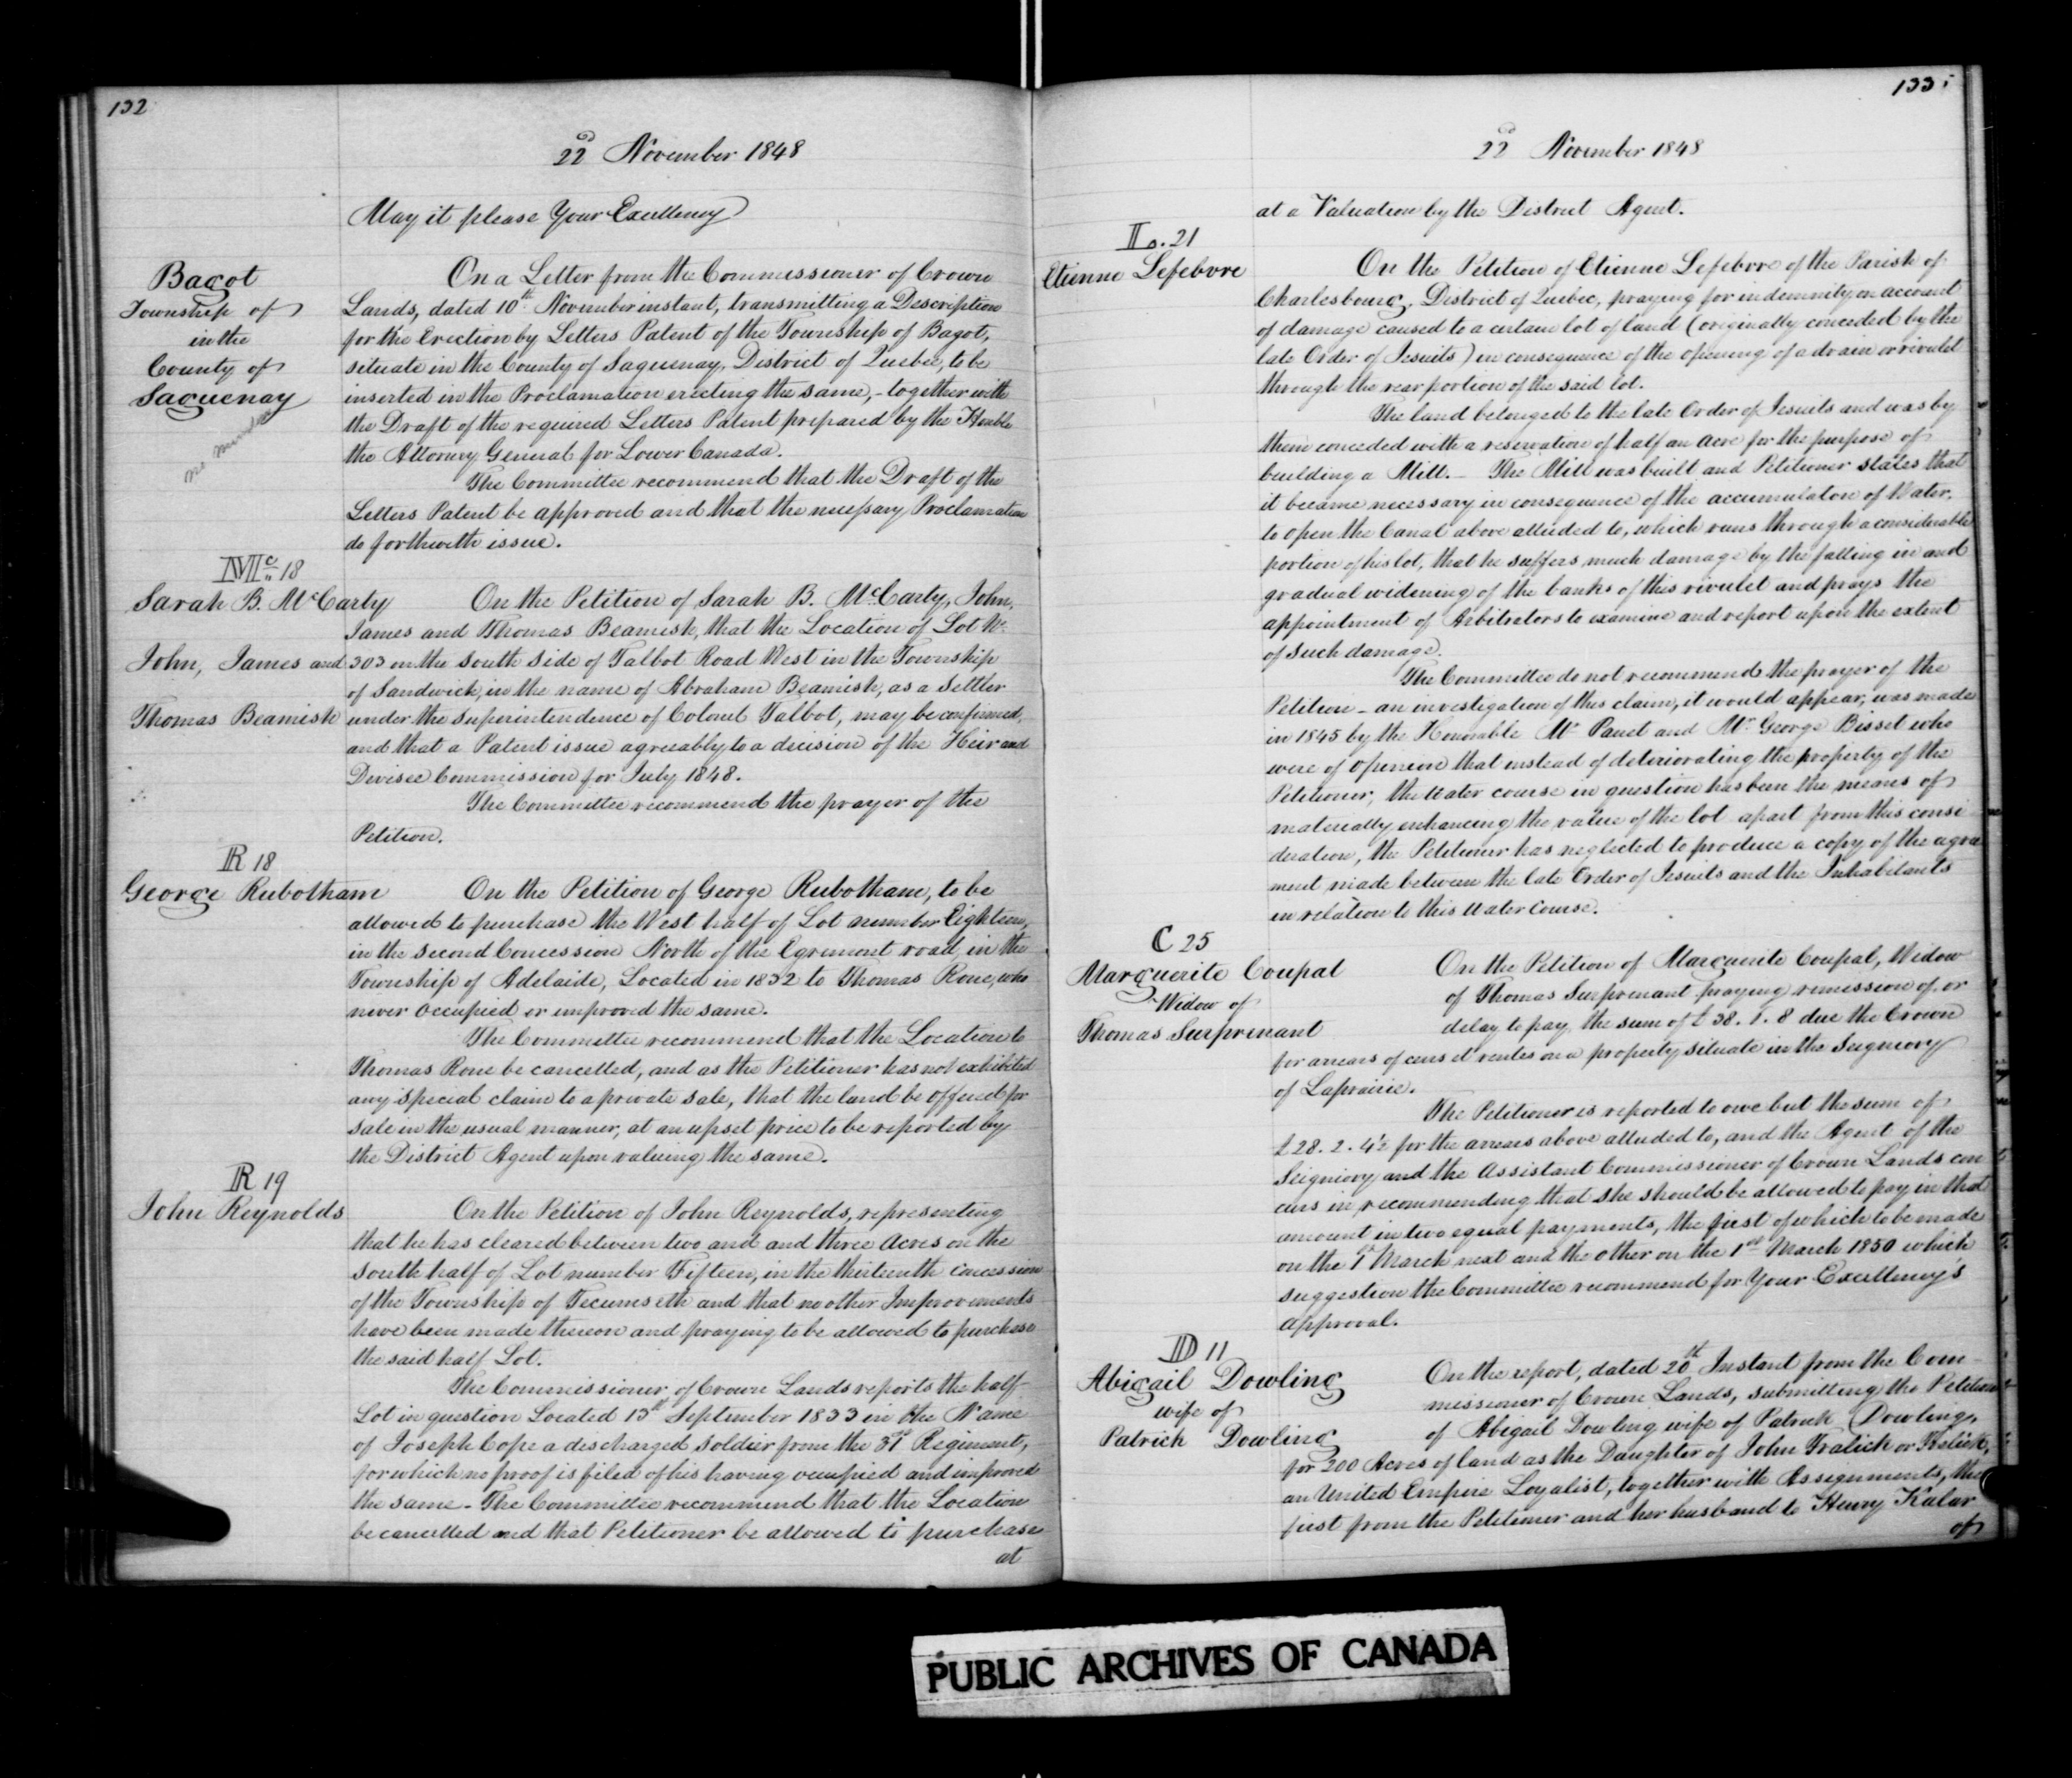 132
22d November 1848
May it please Your Excellency
Bagot
Township of
in the
County of
Saguenay
On a Letter from the Commissioner of Crown
Lands, dated 10th November instant, transmitting a Description
for the Erection by Letters Patent of the Township of Bagot,
situate in the County of Saguenay, District of Quebec, to be
inserted in the Proclamation erecting the same, - together with
the Draft of the required Letters Patent prepared by the Honble
the Attorney General for Lower Canada.
The Committee recommend that the Draft of the
Letters Patent be approved and that the necessary Proclamation
do forthwith issue.
Mc 18
Sarah B. McCarty
John, James and
Thomas Beamish
On the Petition of Sarah B. McCarty, John,
James and Thomas Beamish, that the Location of Lot No
303 on the south side of Talbot Road West in the Township
of Sandwich, in the name of Abraham Beamish, as a Settler
under the superintendence of Colonel Talbot, may be confirmed,
and that a Patent issue agreeably to a decision of the Heir and
Devisee Commission for July 1848.
The Committee recommend the prayer of the
Petition.
R 18
George Rubotham
On the Petition of George Rubotham, to be
allowed to purchase the West half of Lot number Eighteen,
in the second Concession North of the Egremont road, in the
Township of Adelaide, Located in 1832 to Thomas Rone, who
never occupied or improved the same.
The Committee recommend that the Location to
Thomas Rone be cancelled, and as the Petitioner has not exhibited
any special claim to a private sale, that the land be offered for
sale in the usual manner, at an upset price to be reported by
the District Agent upon valuing the same.
R 19
John Reynolds
On the Petition of John Reynolds, representing
that he has cleared between two and and three Acres on the
South half of Lot number Fifteen, in the thirteenth concession
of the Township of Tecumseth and that no other Improvements
have been made thereon and praying to be allowed to purchase
the said half Lot.
The Commissioner of Crown Lands reports the half
Lot in question Located 13th September 1833 in the Name
of Joseph Cope a discharged soldier from the 31st Regiment,
for which no proof is filed of his having occupied and improved
the same - The Committee recommend that the Location
be cancelled and that Petitioner be allowed to purchase
at
133
22d November 1848
at a Valuation by the District Agent.
L. 21
Etienne Lefebvre
On the Petition of Etienne Lefebvre of the Parish of
Charlesbourg, District of Quebec, praying for indemnity on account
of damage caused to a certain lot of land (originally conceded by the
late Order of Jesuits) in consequence of the opening of a drain or rivulet
through the rear portion of the said lot.
The land belonged to the late Order of Jesuits and was by
them conceded with a reservation of half an acre for the purpose of
building a Mill. - The Mill was built and Petitioner states that
it became necessary in consequence of the accumulaton of Water,
to open the Canal above alluded to, which runs through a considerable
portion of his lot, that he suffers much damage by the falling in and
gradual widening of the banks of this rivulet and prays the
appointment of Arbitrators to examine and report upon the extent
of such damage.
The Committee do not recommend the prayer of the
Petition - an investigation of this claim, it would appear, was made
in 1845 by the Honorable Mr Panet and Mr George Bisset who
were of opinion that instead of deteriorating the property of the
Petitioner, the water course in question has been the means of
materially enhancing the value of the lot apart from this consi
deration, the Petitioner has neglected to produce a copy of the agree
ment made between the late Order of Jesuits and the Inhabitants
in relation to this Water Course.
C 25
Marguerite Coupal
Widow of
Thomas Surprenant
On the Petition of Marguerite Coupal, Widow
of Thomas Surprenant praying remission of or
delay to pay the sum of £38. 1. 8 due the Crown
for arrears of cens et rentes on a property situate in the Seigniory
of Laprairie.
The Petitioner is reported to owe but the sum of
£28. 2. 4½ for the arrears above alluded to, and the Agent of the
Seigniory and the Assistant Commissioner of Crown Lands con
curs in recommending that she should be allowed to pay in that
amount in two equal payments, the first of which to be made
on the 1st March next and the other on the 1st March 1850 which
suggestion the Committee recommend for Your Excellency's
approval.
D 11
Abigail Dowling
wife of
Patrick Dowling
On the report, dated 20th Instant from the Com-
missioner of Crown Lands, submitting the Petition
of Abigail Dowling wife of Patrick Dowling,
for 200 Acres of land as the Daughter of John Kralick or
an United Empire Loyalist, together with Assignments, the
first from the Petitioner and her husband to Henry Kalar
of
PUBLIC ARCHIVES OF CANADA